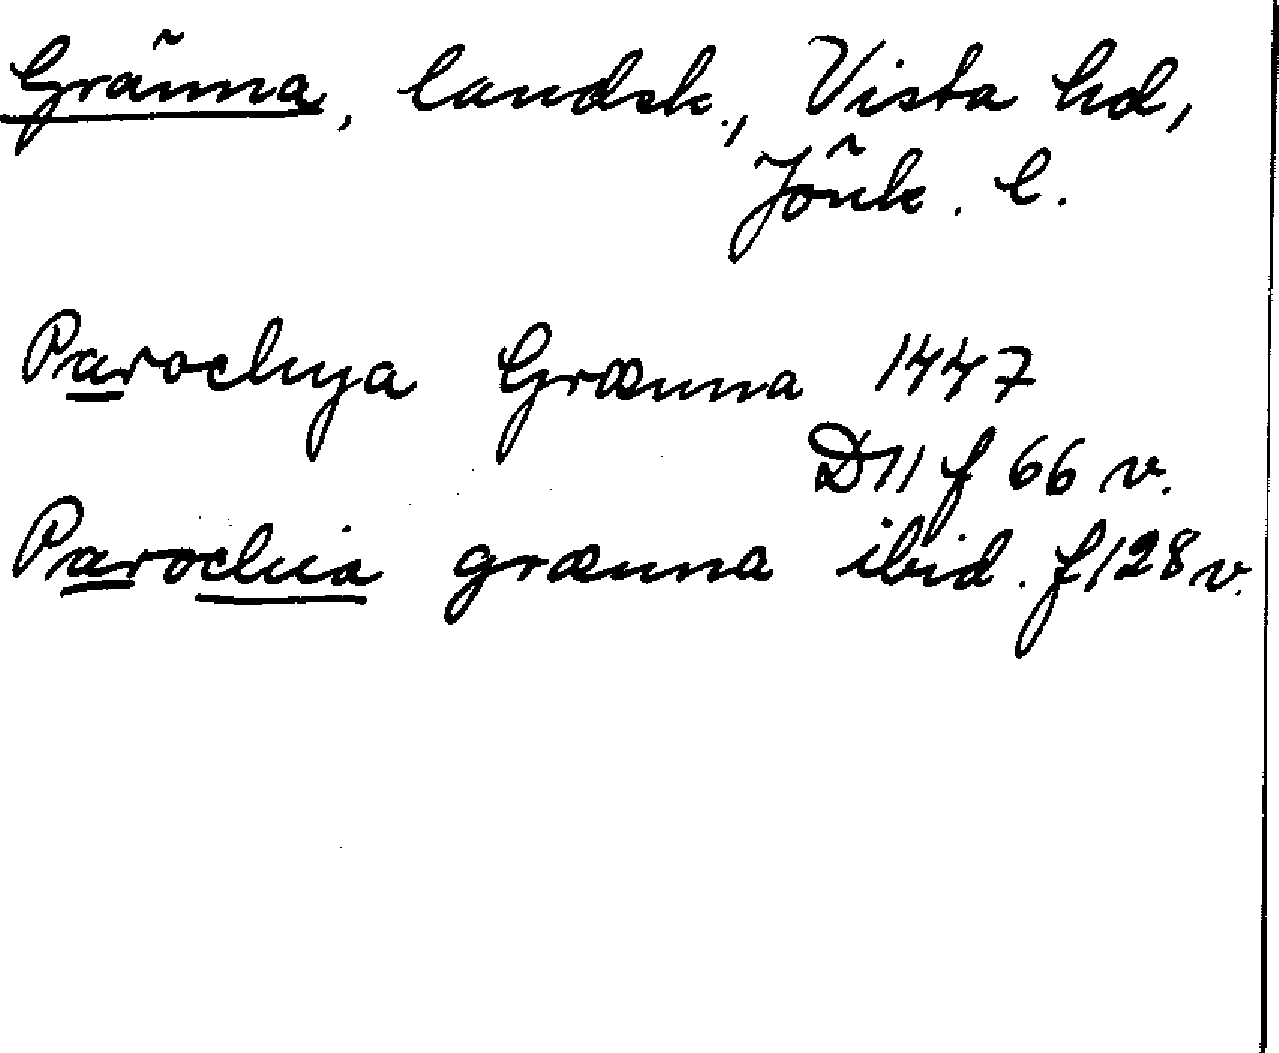 Gränna, landsk., Vista hd,
Jönk. l.
Parochya Grænna 1447
D 11 f 66 v.
Parochia grænna ibid. f 128 v.